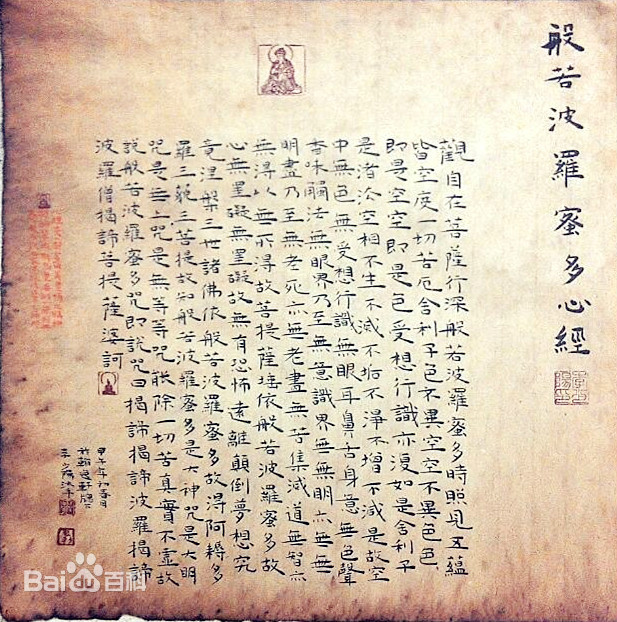 般若波羅蜜多心經
觀自在菩薩行深般若波羅蜜多時照見五蘊
皆空度一切苦厄舍利子色不異空空不異色色
即是空空即是色受想行識亦復如是舍利子
是諸法空相不生不滅不垢不淨不增不減是故空
中無色無受想行識無眼耳鼻舌身意無色聲
香味觸法無眼界乃至無意識界無無明亦無無
明盡乃至無老死亦無老盡無苦集滅道無智亦
無得以無所得故菩提薩埵依般若波羅蜜多故
心無罣礙無罣礙故無有恐怖遠離顛倒夢想究
竟涅槃三世諸佛依般若波羅蜜多故得阿耨多
羅三藐三菩提故知般若波羅蜜多是大神咒是大明
咒是無上咒是無等等咒能除一切苦真實不虛故
說般若波羅蜜多咒即說咒曰揭諦揭諦波羅揭諦
波羅僧揭諦菩提薩婆訶
甲午年初春月
Bai百科